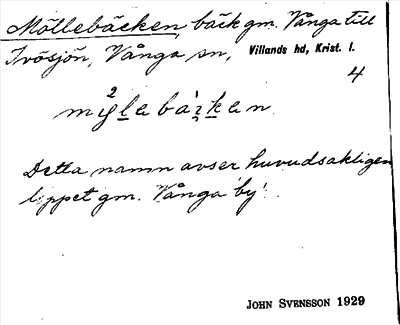 Möllebäcken, bäck gm. Vånga till
Ivösjön, Vånga sn, Villands hd, Krist. l.
4
Detta namn avser huvudsakligen
loppet gm. Vånga by.
JOHN SVENSSON 1929